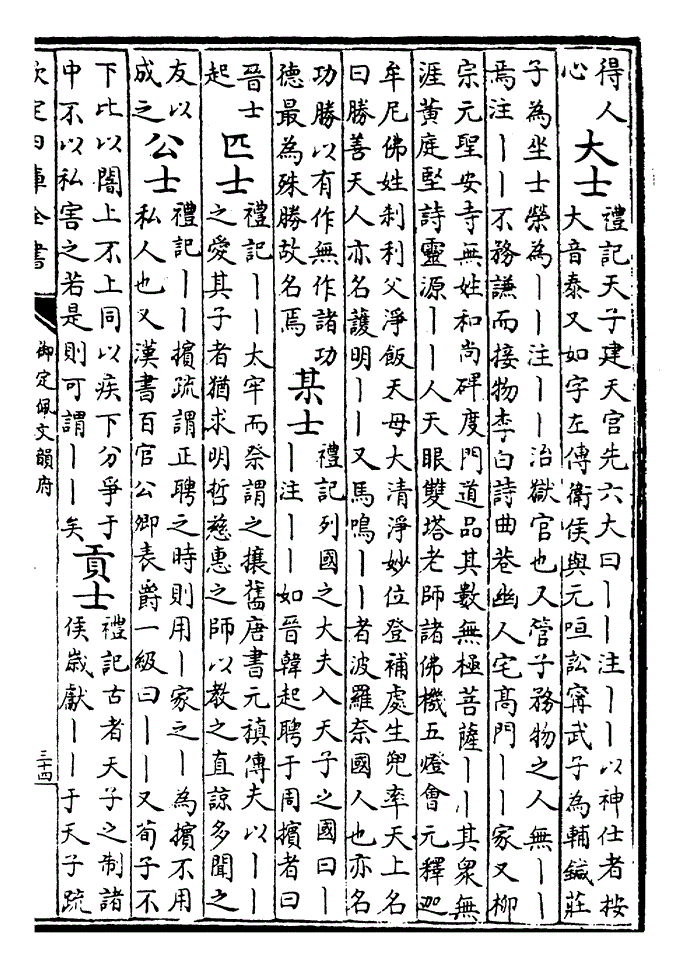 得人
心
大士
禮記天子建天官先六大曰丨丨注丨丨以神仕者按
大音泰又如字左傳衛侯與元咺訟寗武子為輔鍼莊
子為坐士榮為丨丨注丨丨治獄官也又管子務物之人無丨丨
焉注丨丨不務謙而接物李白詩曲巷幽人宅髙門丨丨家又柳
宗元聖安寺無姓和尚碑度門道品其數無極菩薩丨丨其衆無
涯黄庭堅詩靈源丨丨人天眼雙塔老師諸佛機五燈會元釋迦
牟尼佛姓刹利父淨飯天母大清淨妙位登補處生兜率天上名
曰勝善天人亦名護明丨丨又馬鳴丨丨者波羅奈國人也亦名
功勝以有作無作諸功
德最為殊勝故名焉
某士
禮記列國之大夫入天子之國曰丨
丨注丨丨如晉韓起聘于周擯者曰
晉士
起
匹士
禮記丨丨太牢而祭謂之攘舊唐書元稹傳夫以丨丨
之愛其子者猶求明哲慈惠之師以教之直諒多聞之
友以
成之
公士
禮記丨丨擯疏謂正聘之時則用丨家之丨為擯不用
私人也又漢書百官公卿表爵一級曰丨丨又荀子不
下比以闇上不上同以疾下分爭于
中不以私害之若是則可謂丨丨矣
貢士
禮記古者天子之制諸
侯歲獻丨丨于天子疏
欽定四庫全書
御定佩文韻府
三十四